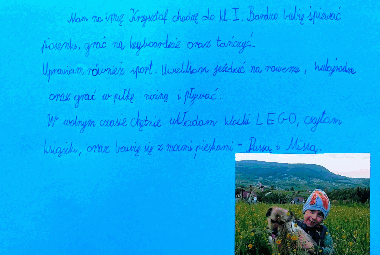 Mam na imię Krzysztof chodzę do kl I. Bardzo lubię śpiewać
piosenki, grać na keyboardzie oraz tańczyć.
Uprawiam również sport. Uwielbiam jeździć na rowerze, hulajnodze
oraz grać w piłkę nożną i pływać.
W wolnym czasie chętnie układam klocki LEGO, czytam
książki, oraz bawię się z moimi pieskami - Pusią i Misią.